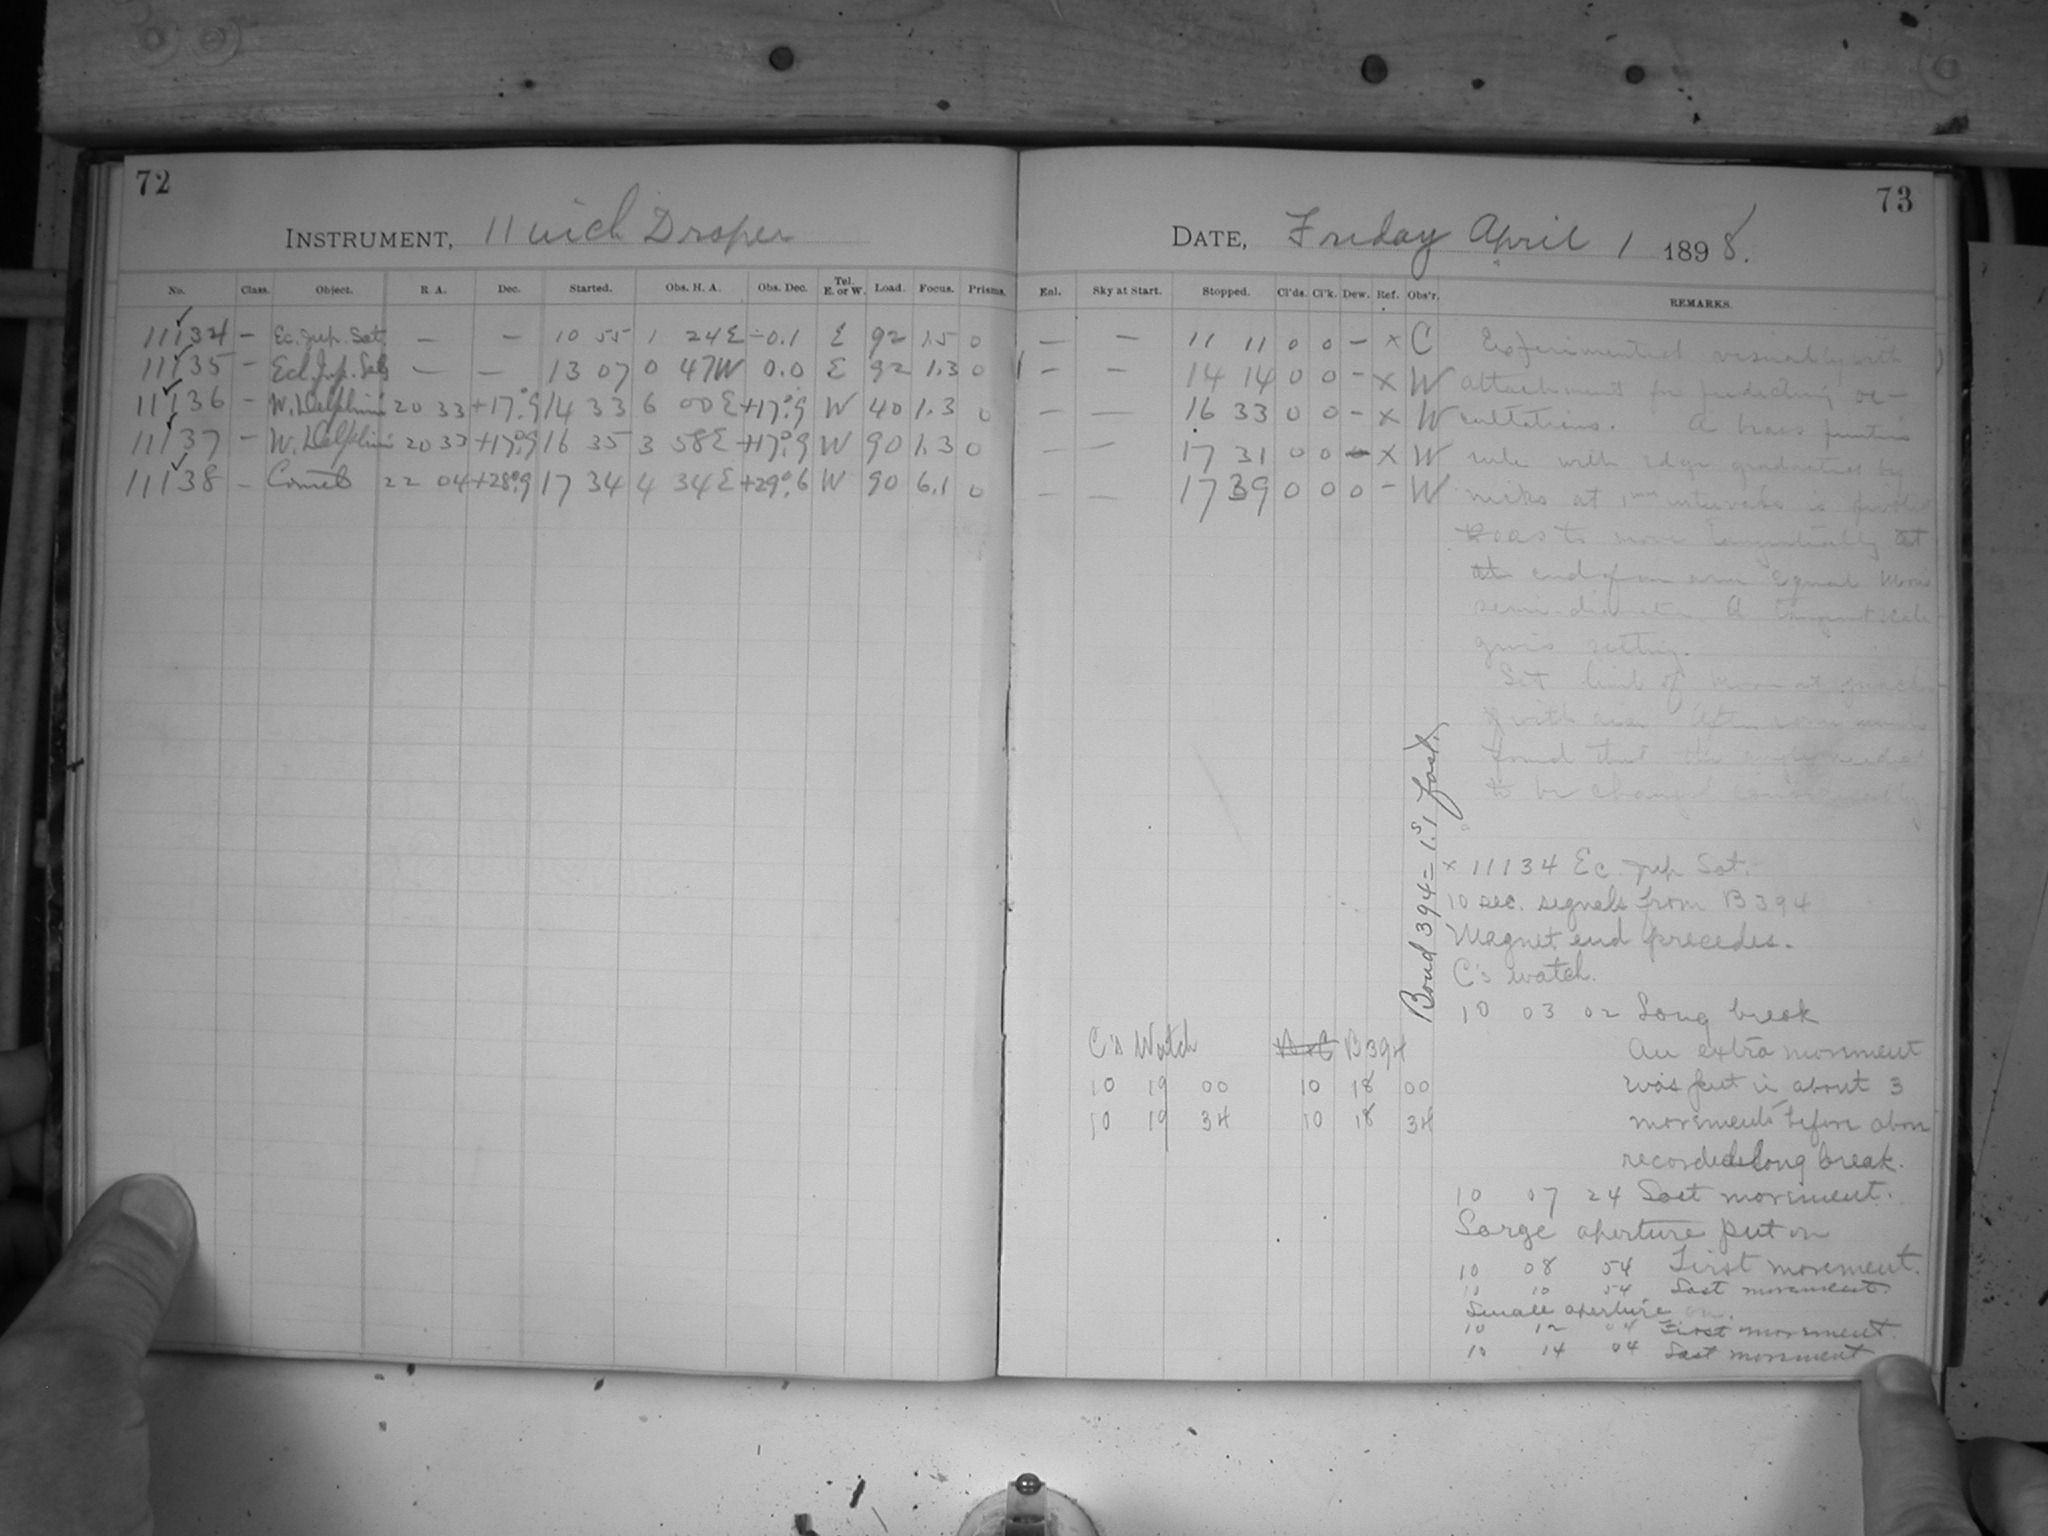 72
INSTRUMENT, 11 inch Draper
No. Class. Object. R A. Dec. Started. Obs. H. A. Obs. Dec. Tel. E. or W. Load. Focus. Prisms.
11134 — Ec. Jup. Sat. — — 10 55 1 24 E -0.1 E 92 1.5 0
11135 — Ecl. Jup. Sat. — — 13 07 0 47 W 0.0 E 92 1.3 0
11136 — W. Delphini 20 33 +17°.9 14 33 6 00 E +17°.9 W 40 1.3 0
11137 — W. Delphini 20 33 +17°.9 16 35 3 58 E +17°.9 W 90 1.3 0
11138 — Comet 22 04 +28°.9 17 34 4 34 E +29°.6 W 90 6.1 0
73
DATE, Friday April 1 1898.
Enl. Sky at Start. Stopped. Cl'ds. Cl'k. Dew. Ref. Obs'r. REMARKS.
— — 11 11 0 0 — × C
— — 14 14 0 0 — × W
— — 16 33 0 0 — × W
— — 17 31 0 0 — × W
— — 17 39 0 0 0 — W
Experimented visually with
attachment for predicting oc-
cultations. A brass
rule with edge graduated by
nicks at 1mm intervals is
so as to move tangentially
at end of an arm equal Moon
semi-diameter. A tangent scale
gives setting.
Set limb of Moon at
with
found that the angle
to be changed considerably
Bond 394 = 1.s1 fast.
× 11134 Ec. Jup Sat.
10 sec. signals from B 394
Magnet end precedes.
C's watch.
10 03 02 Long break
An extra movement
was put in about 3
movements before above
recorded long break.
C's Watch B 394
10 19 00 10 18 00
10 19 34 10 18 34
10 07 24 Last movement.
Large aperture put on
10 08 54 First movement.
10 10 54 Last movement.
Small aperture on.
10 12 04 First movement.
10 14 04 Last movement